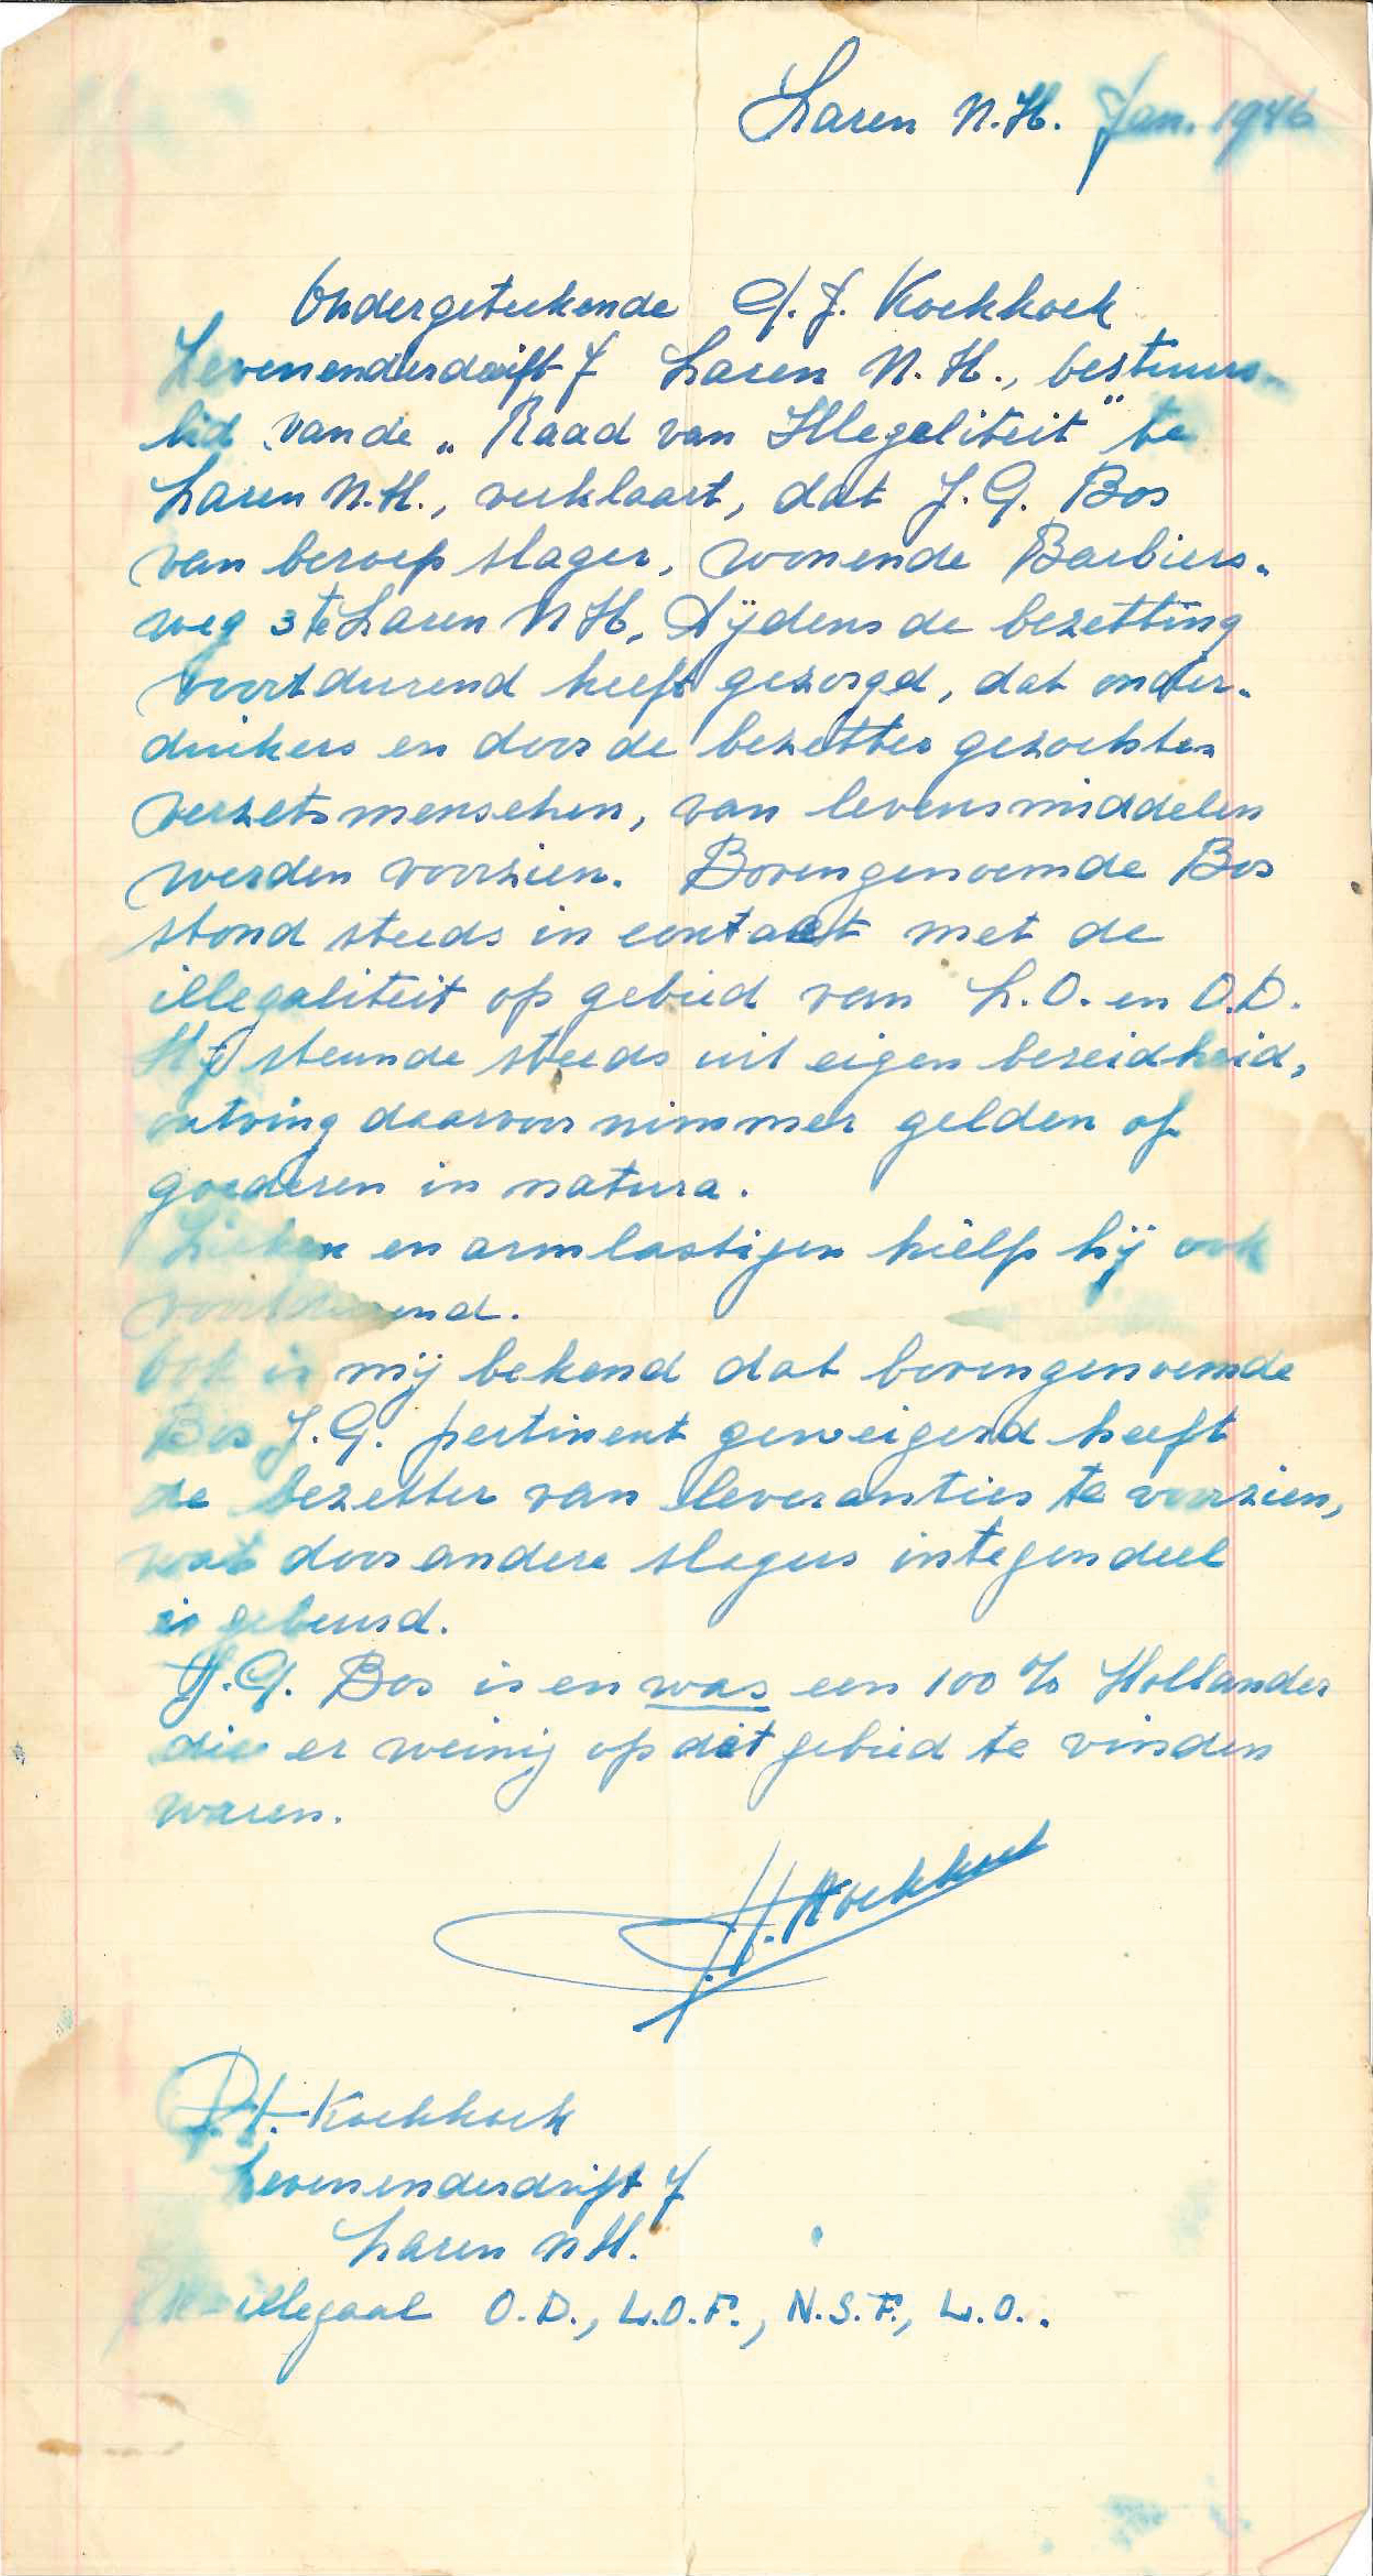 Laren N.H. Jan. 1946
Ondergeteekende A. J. Koekkoek
Zevenenderdrift 7 Laren N. H., bestuurs-
lid van de „Raad van Illegaliteit" te
Laren N.H., verklaart, dat J. G. Bos
van beroep slager, wonende Barbiers-
weg 3 te Laren N H, tijdens de bezetting
voortdurend heeft gezorgd, dat onder-
duikers en door de bezetter gezochten
verzetsmenschen, van levensmiddelen
werden voorzien. Bovengenoemde Bos
stond steeds in contact met de
illegaliteit op gebied van L.O. en O.D.
Hij steunde steeds uit eigen bereidheid,
ontving daarvoor nimmer gelden of
goederen in natura.
Zieken en armlastigen hielp hij ook
voortdurend.
Ook is mij bekend dat bovengenoemde
Bos J. G. pertinent geweigerd heeft
de bezetter van leveranties te voorzien,
wat door andere slagers integendeel
is gebeurd.
J. G. Bos is en was een 100 % Hollander
die er weinig op dit gebied te vinden
waren.
Koekkoek
Koekkoek
Zevenenderdrift 7
Laren N.H.
illegaal O.D., L.O.F., N.S.F., L.O..